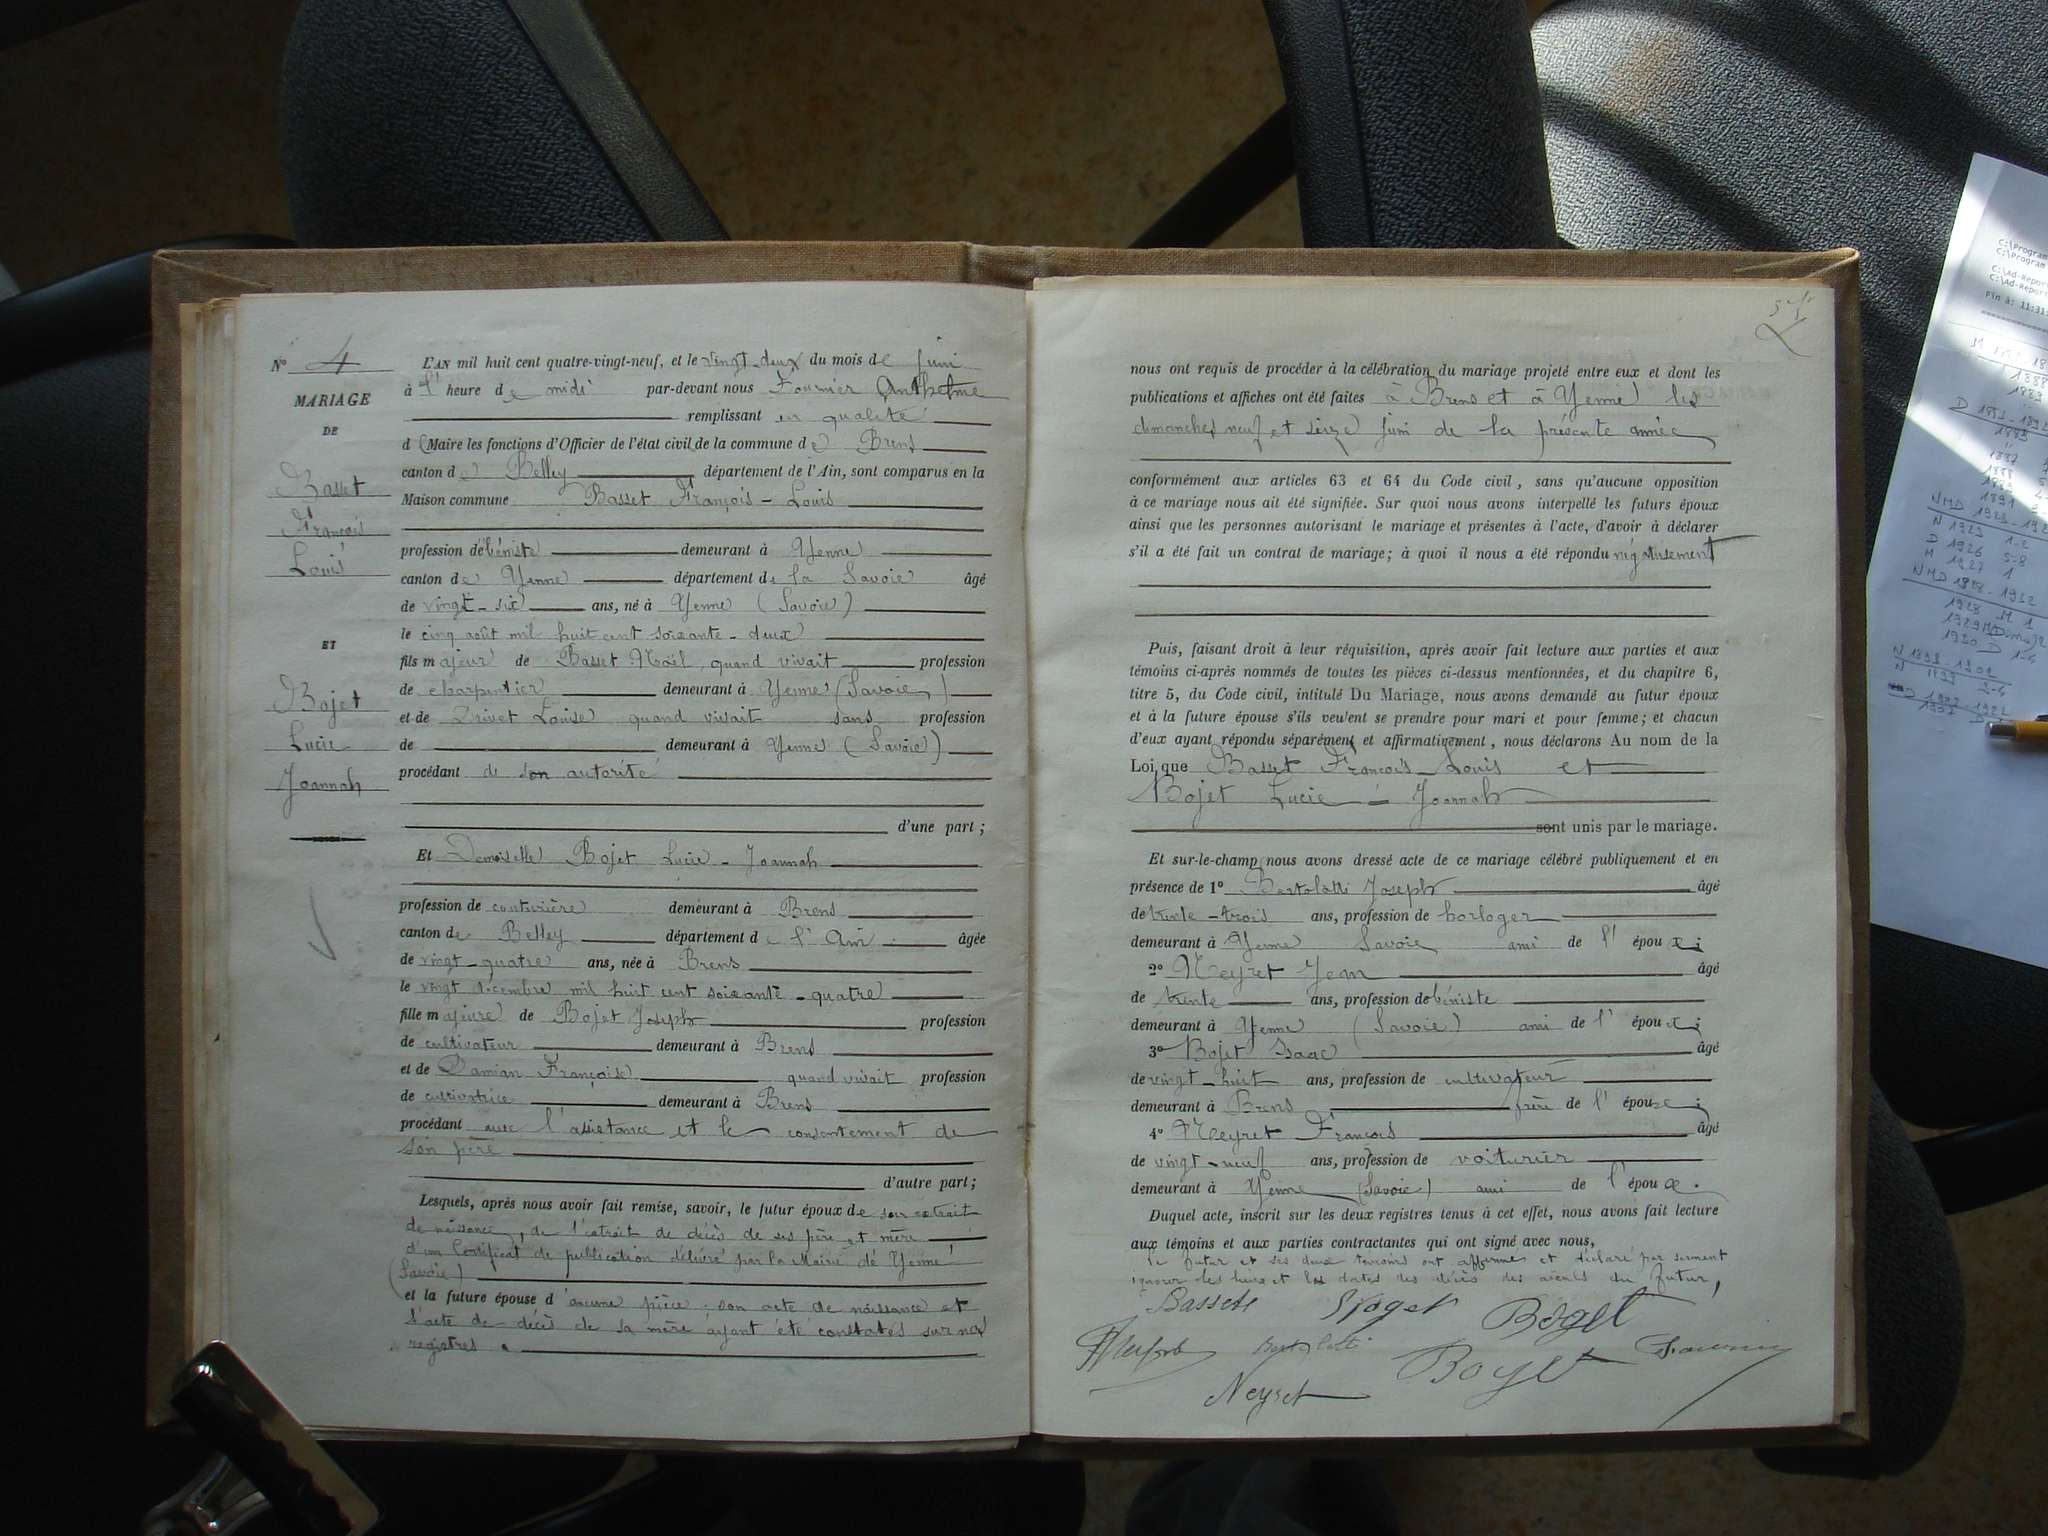 N° 4
MARIAGE
DE
Basset
François
Louis
ET
Bojet
Lucie
Joannah
L'AN mil huit cent quatre-vingt-neuf, et le vingt-deux du mois de juin
à l'heure de midi par-devant nous Fournier Anthelme
remplissant en qualité
d Maire les fonctions d'Officier de l'état civil de la commune de Brens
canton de Belley département de l'Ain, sont comparus en la
Maison commune Basset François-Louis
profession débéniste demeurant à Yenne
canton de Yenne département de la Savoie âgé
de vingt-six ans, né à Yenne (Savoie)
le cinq août mil huit cent soixante-deux
fils majeur de Basset Noël, quand vivait profession
de charpentier demeurant à Yenne (Savoie)
et de Louise quand vivait sans profession
de demeurant à Yenne (Savoie)
procédant de son autorité
d'une part ;
Et Demoiselle Bojet Lucie-Joannah
profession de couturière demeurant à Brens
canton de Belley département de l'Ain âgée
de vingt-quatre ans, née à Brens
le vingt décembre mil huit cent soixante-quatre
fille majeure de Bojet Joseph profession
de cultivateur demeurant à Brens
et de Damian Françoise quand vivait profession
de cultivatrice demeurant à Brens
procédant avec l'assistance et le consentement de
son père
d'autre part ;
Lesquels, après nous avoir fait remise, savoir, le futur époux de son extrait
de naissance, de l'extrait de décès de ses père et mère
d'un Certificat de publication délivré par la Mairie de Yenne
(Savoie)
et la future épouse d'aucune pièce, son acte de naissance et
l'acte de décès de sa mère ayant été constatés sur nos
registres.
nous ont requis de procéder à la célébration du mariage projeté entre eux et dont les
publications et affiches ont été faites à Brens et à Yenne les
dimanches neuf et seize juin de la présente année
conformément aux articles 63 et 64 du Code civil, sans qu'aucune opposition
à ce mariage nous ait été signifiée. Sur quoi nous avons interpellé les futurs époux
ainsi que les personnes autorisant le mariage et présentes à l'acte, d'avoir à déclarer
s'il a été fait un contrat de mariage ; à quoi il nous a été répondu négativement
Puis, faisant droit à leur réquisition, après avoir fait lecture aux parties et aux
témoins ci-après nommés de toutes les pièces ci-dessus mentionnées, et du chapitre 6,
titre 5, du Code civil, intitulé Du Mariage, nous avons demandé au futur époux
et à la future épouse s'ils veulent se prendre pour mari et pour femme ; et chacun
d'eux ayant répondu séparément et affirmativement, nous déclarons Au nom de la
Loi, que Basset François-Louis et
Bojet Lucie - Joannah
sont unis par le mariage.
Et sur-le-champ nous avons dressé acte de ce mariage célébré publiquement et en
présence de 1° Bertolatti Joseph âgé
de trente-trois ans, profession de horloger
demeurant à Yenne Savoie ami de l'époux ;
2° Neyret Jean âgé
de trente ans, profession débéniste
demeurant à Yenne (Savoie) ami de l'époux ;
3° Bojet Isaac âgé
de vingt-huit ans, profession de cultivateur
demeurant à Brens frère de l'épouse ;
4° Neyret François âgé
de vingt-neuf ans, profession de voiturier
demeurant à Yenne (Savoie) ami de l'époux.
Duquel acte, inscrit sur les deux registres tenus à cet effet, nous avons fait lecture
aux témoins et aux parties contractantes qui ont signé avec nous,
le futur et ses deux témoins ont affirmé et déclaré par serment
ignorer les lieux et les dates des décès des aïeuls du futur,
Boget
Neyret
C:\Program
C:\Program
C:\Ad-Repor
C:\Ad-Repor
Fin à: 11:31
N 1923 1-2
D 1926 5-8
M 1927 1
NMD 1928-1932
1928 M 1